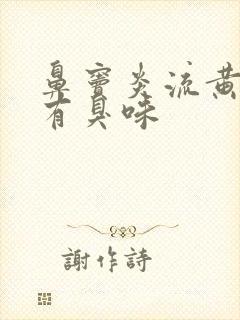 鼻窦炎流黄
有臭味
謝作詩